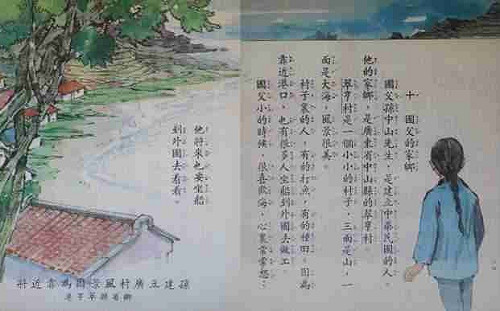 十　國父的家鄉
國父孫中山先生，是建立中華民國的人。
他的家鄉，是廣東省中山縣的翠亨村。
翠亨村是一個小小的村子，三面是山，一
面是大海，風景很美。
村子裏的人，有的打魚，有的種田。因為
靠近港口，也有很多人坐船到外國去做工。
國父小的時候，很喜歡海，心裏常常想：
他將來也要坐船
到外國去看看。
孫建立廣村風景因為靠近計
鄉省縣翠子港